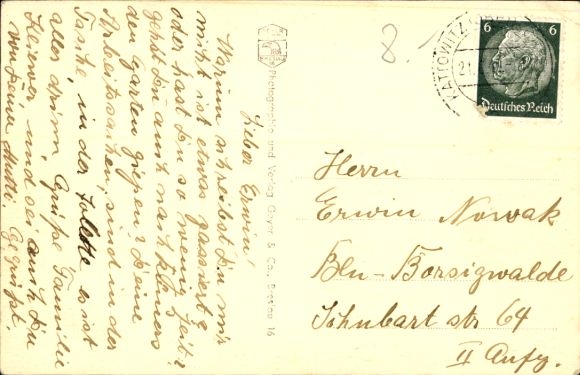 Lieber Erwin!
Warum schreibst du mir
nicht ist etwas passiert?
oder hast du so wenig Zeit?
gehst du auch nach
den Garten gießen? Deine
Arbeitssachen, sind in der
Tasche, in der es ist
alles drinn, Grüße Familie
und sei auch du
von deine Mutti. Gegrüßt.
Photographie und Verlag Geyer & Co., Breslau 16
8.
KATTOWITZ
21.
6
6
Deutsches Reich
Herrn
Erwin Nowak
Bln-Borsigwalde
Schubart str 64
II Aufg.